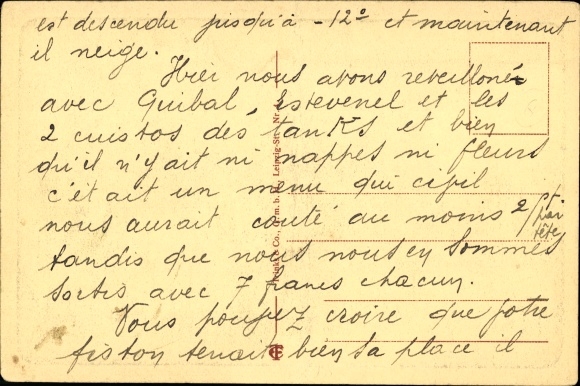 est descendu jusqu'à -12° et maintenant
il neige.
Hier nous avons reveilloné
avec Guibal, Estevenel et les
2 cuistos des tanks et bien
qu'il n'y ait ni nappes ni fleurs
c'était un menu qui civil
nous aurait couté au moins 2 par
tête
tandis que nous nous en sommes
sortis avec 7 francs chacun.
Vous pouvez croire que votre
fiston tenait bien sa place il
& Co., G.m.b.H., Leipzig-Str. Nr.